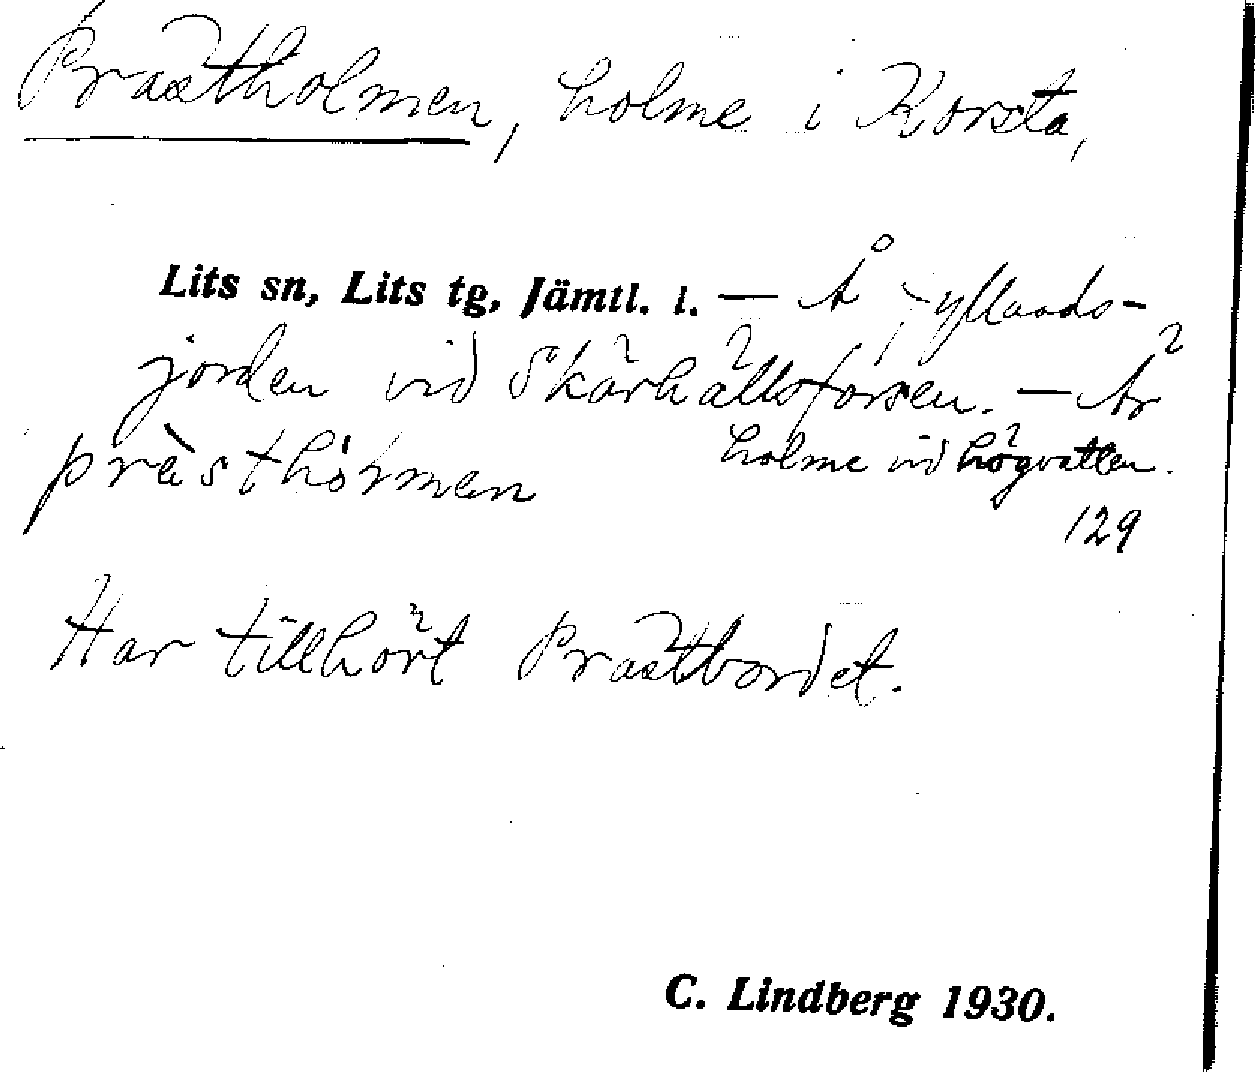 Prästholmen, holme i Korsta,
Lits sn, Lits tg, Jämtl. l. — Å Fyllands-
jorden vid Skärhällsforsen. — Är
holme vid högvatten.
prästhòlmen
129
Har tillhört Prästbordet.
C. Lindberg 1930.